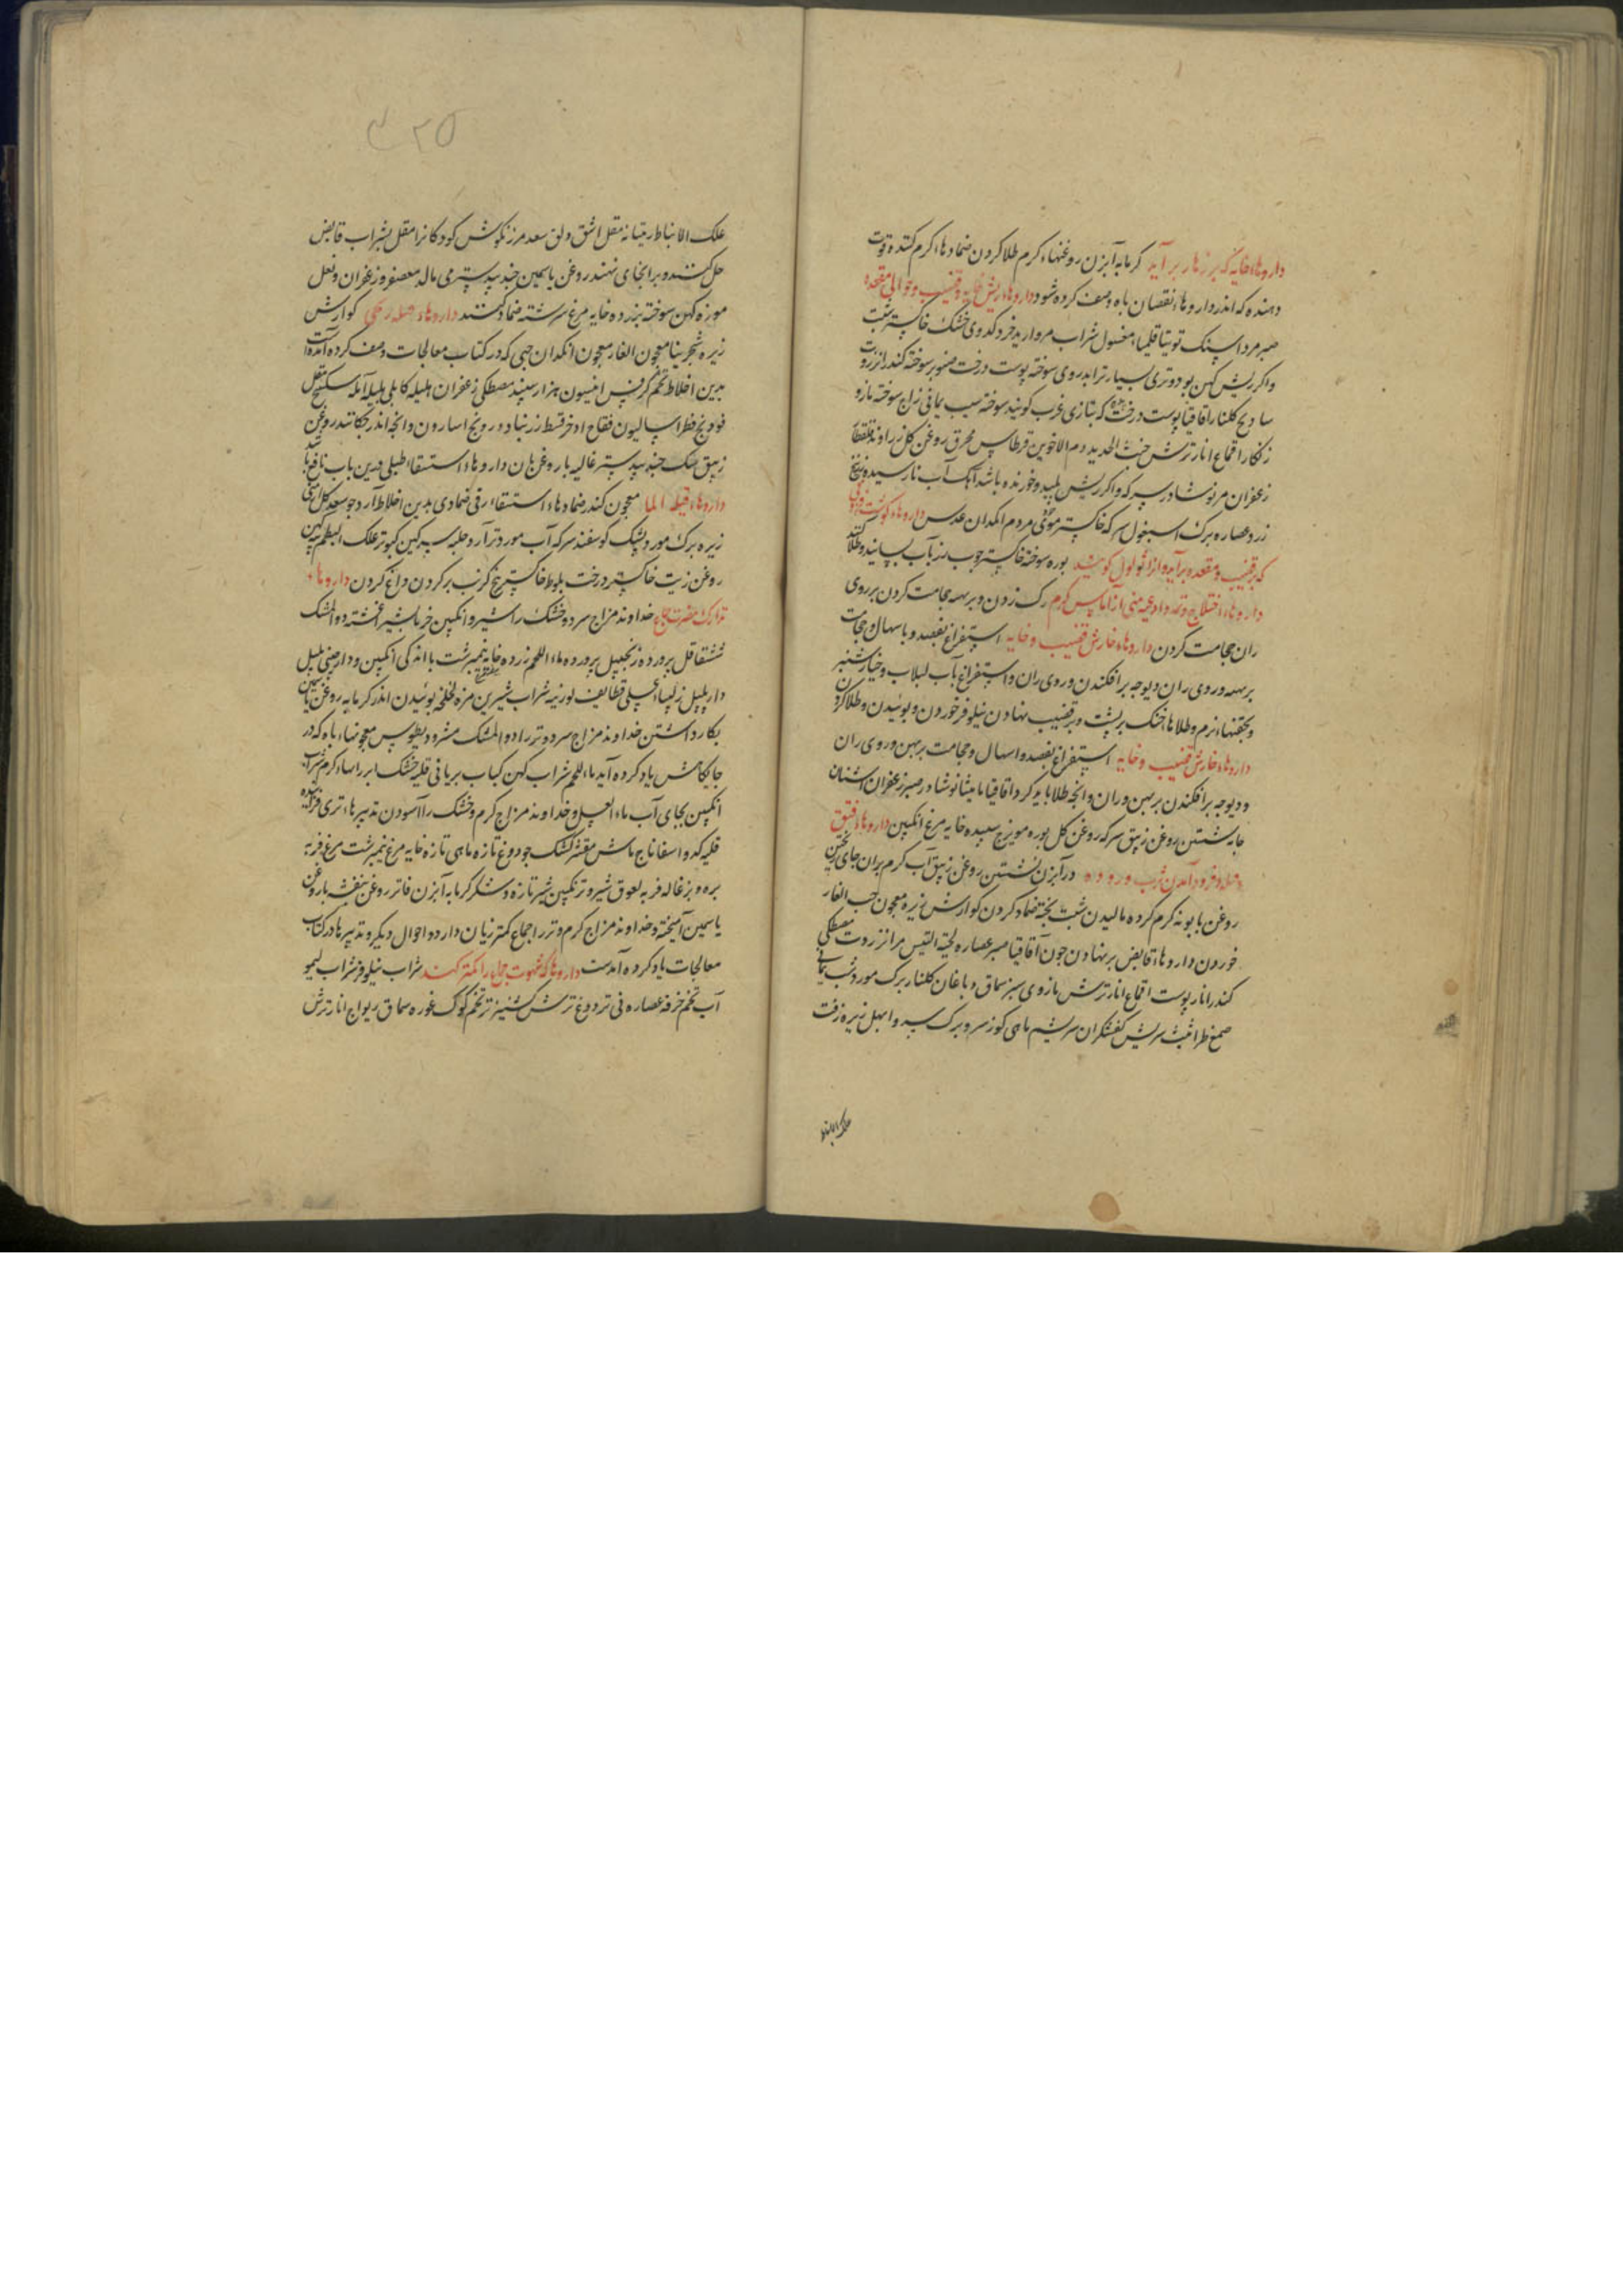 داروهاء خایه که بر زهار برآید کرمابه آبزن روغنهاء کرم طلا کردن ضمادهاء کرم کننده قوت
دهنده که اندر داروهاء نقصان باه وصف کرده شود داروهاء ریش خایه و قضیب و حوالی مقعده
صبر مرداسنک توتیا قلیمیاء مغسول شراب مروارید خرد کدوی خشک خاکستر شبت
واکر ریش کهن بود و تری بسیار ترابد روی سوخته پوست درخت صنوبر سوخته کندر انزروت
سادج کلنار اقاقیا پوست درخت که بتازی غرب کویند سوخته سیب یمانی زاج سوخته مازو
زنکار اقماع انار ترش خبث الحدید دم الاخوین قرطاس محرق روغن کل زراوند قلقطار
زعفران مر نوشادر سرکه واکر ریش پلید و خورنده باشد آهک آب نارسیده زرنیخ
زرد عصاره برک اسبغول سرکه خاکستر موی مردم انکدان عدس داروهاء کوشت فزونی
که بر قضیب و مقعده برآید و آنرا ثولول کویند بوره سوخته خاکستر چوب رز بآب بسایند و طلا کنند
داروهاء اختلاج و تمدد اوعیه منی از آماس کرم رک زدن و بر مهره حجامت کردن بر روی
ران حجامت کردن داروهاء خارش قضیب و خایه استفراغ بفصد و باسهال و حجامت
بر مهره و روی ران و دیوجه برافکندن و روی ران و استفراغ بآب لبلاب و خیارشنبر
و بحقنهاء نرم و طلاهاء خنک بر پشت و بر قضیب نهادن نیلوفر خوردن و بوئیدن و طلا کردن
داروهاء خارش قضیب و خایه استفراغ بفصد و اسهال و حجامت بر بهن و روی ران
و دیوجه برافکندن بر بهن و ران و انچه طلا باید کرد اقاقیا مامیثا نوشادر صبر زعفران اشنان
جامه شستن روغن زیبق سرکه روغن کل بوره مویزج سپیده خایه مرغ انکبین داروهاء فتیق
و قیله و فرود آمدن ثرب و روده در آبزن نشستن روغن زیبق آب کرم بران جای ریختن
روغن بابونه کرم کرده مالیدن شبت پخته ضماد کردن کوارش زیره معجون حب الغار
خوردن داروهاء قابض بر نهادن چون اقاقیا صبر عصاره لحیة التیس مر انزروت مصطکی
کندر انار پوست اقماع انار ترش مازوی سبز سماق دباغان کلنار برک مورد شب یمانی
صمغ طراثیث سریش کفشکران سریشم ماهی کوز سرو برک سرو ابهل زیره زفت
علک الانباط
علک الانباط راتیانه مقل اشق ولق سعد مرزنکوش کودکانرا مقل بشراب قابض
حل کنند و بر انجای نهند روغن یاسمین جندبیدستر می مالد معصفر و زعفران و نعل
موزه کهن سوخته بزرده خایه مرغ سرشته ضماد کنند داروهاء قیله ریحی کوارش
زیره شجرینا معجون الغار معجون انکدان حبی که در کتاب معالجات وصف کرده آمده است
بدین اخلاط تخم کرفس انیسون هزار سپند مصطکی زعفران هلیله کابلی بلیله آمله سکبینج مقل
فودنج فطراسالیون فقاح اذخر قسط زرنباد درونج اسارون و انچه اندر چکانند روغن
زیبق مشک جندبیدستر غالیه با روغن بان داروهاء استسقاء طبلی درین باب نافع باشد
داروهاء قیله الماء معجون کندر ضمادهاء استسقاء زقی ضمادی بدین اخلاط آرد جو سعد کل ارمنی
زیره برک مورد پشک کوسفند سرکه آب مورد تر آرد حلبه سرکین کبوتر علک البطم پیه کهن
روغن زیت خاکستر درخت بلوط خاکستر بیخ کرنب بر کردن داغ کردن داروهاء
تدارک مضرت جماع خداوند مزاج سرد و خشک را شیر و انکبین خرما بشیر آغشته دواء المشک
ششقاقل پرورده زنجبیل پرورده ماء اللحم زرده خایه نیمبرشت با اندکی انکبین و دارچینی پلپل
دارپلپل زلیبیاء عسلی قطایف لوزینه شراب شیرین مزه لخلخه بوئیدن اندر کرمابه روغن یاسمین
بکار داشتن خداوند مزاج سرد و تر را دواء المشک مثرودیطوس معجونهاء باه که در
جایکاهش یاد کرده آید ماء اللحم شراب کهن کباب بریانی قلیه خشک ابزارهاء کرم شراب
انکبین بجای آب ماء العسل و خداوند مزاج کرم و خشک را آسودن تدبیرهاء تری فزاینده
قلیه کدو اسفاناج ماش مقشر کشک جو دوغ تازه ماهی تازه خایه مرغ نیمبرشت مرغ فربه
بره و بزغاله فربه لعوق شیر و ترنکبین شیر تازه و شکر کرمابه آبزن فاتر روغن بنفشه با روغن
یاسمین آمیخته و خداوند مزاج کرم و تر را جماع کمتر زیان دارد و احوال دیکر و تدبیرها در کتاب
معالجات یاد کرده آمدست داروهاء که شهوت جماع را کمتر کند شراب نیلوفر شراب لیمو
آب تخم خرفه عصاره نی تر دوغ ترش کشنیز تر تخم کوک غوره سماق ریواج انار ترش